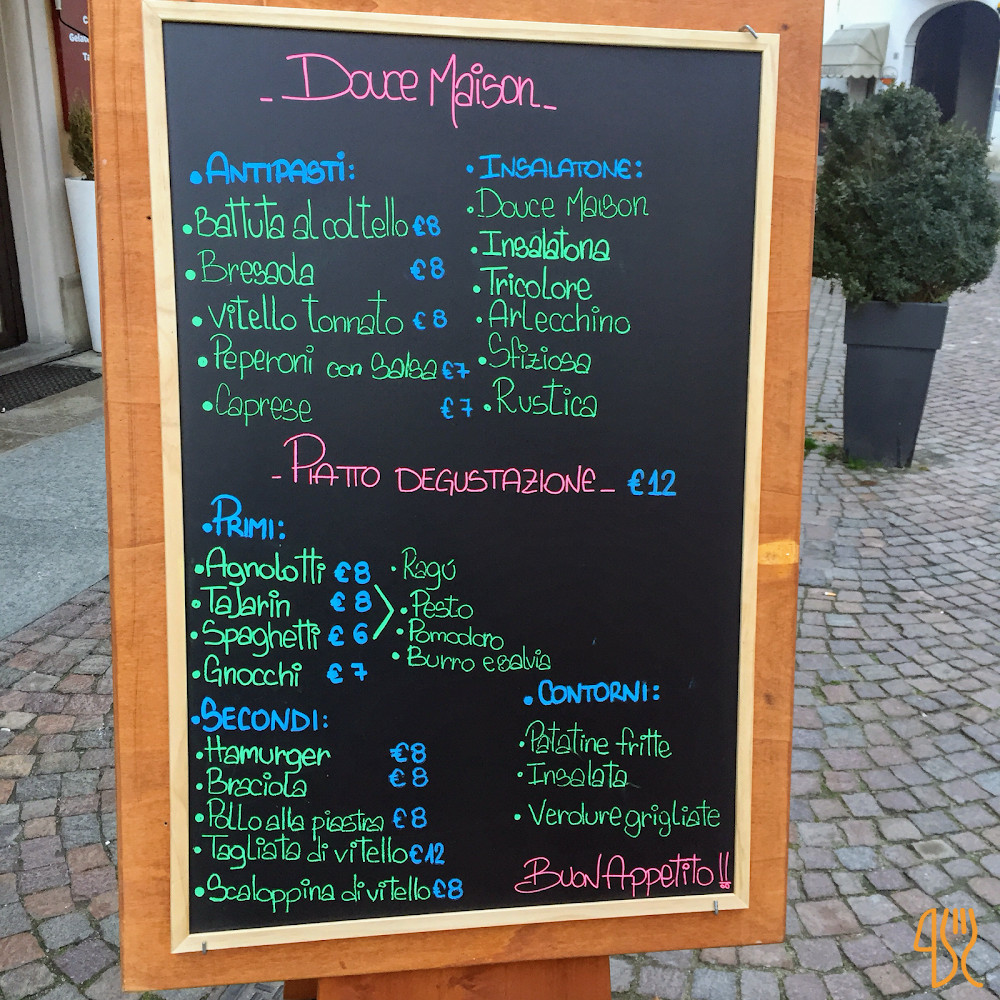 - Douce Maison -
• ANTIPASTI:
• Battuta al coltello €8
• Bresaola €8
• Vitello tonnato €8
• Peperoni con salsa €7
• Caprese €7
• INSALATONE:
• Douce Maison
• Insalatona
• Tricolore
• Arlecchino
• Sfiziosa
• Rustica
- PIATTO DEGUSTAZIONE - €12
• PRIMI:
• Agnolotti €8
• TaJarin €8
• Spaghetti €6
• Gnocchi €7
• Ragú
• Pesto
• Pomodoro
• Burro e salvia
• SECONDI:
• Hamurger €8
• Braciola €8
• Pollo alla piastra €8
• Tagliata di vitello €12
• Scaloppina di vitello €8
• CONTORNI:
• Patatine fritte
• Insalata
• Verdure grigliate
Buon Appetito!!